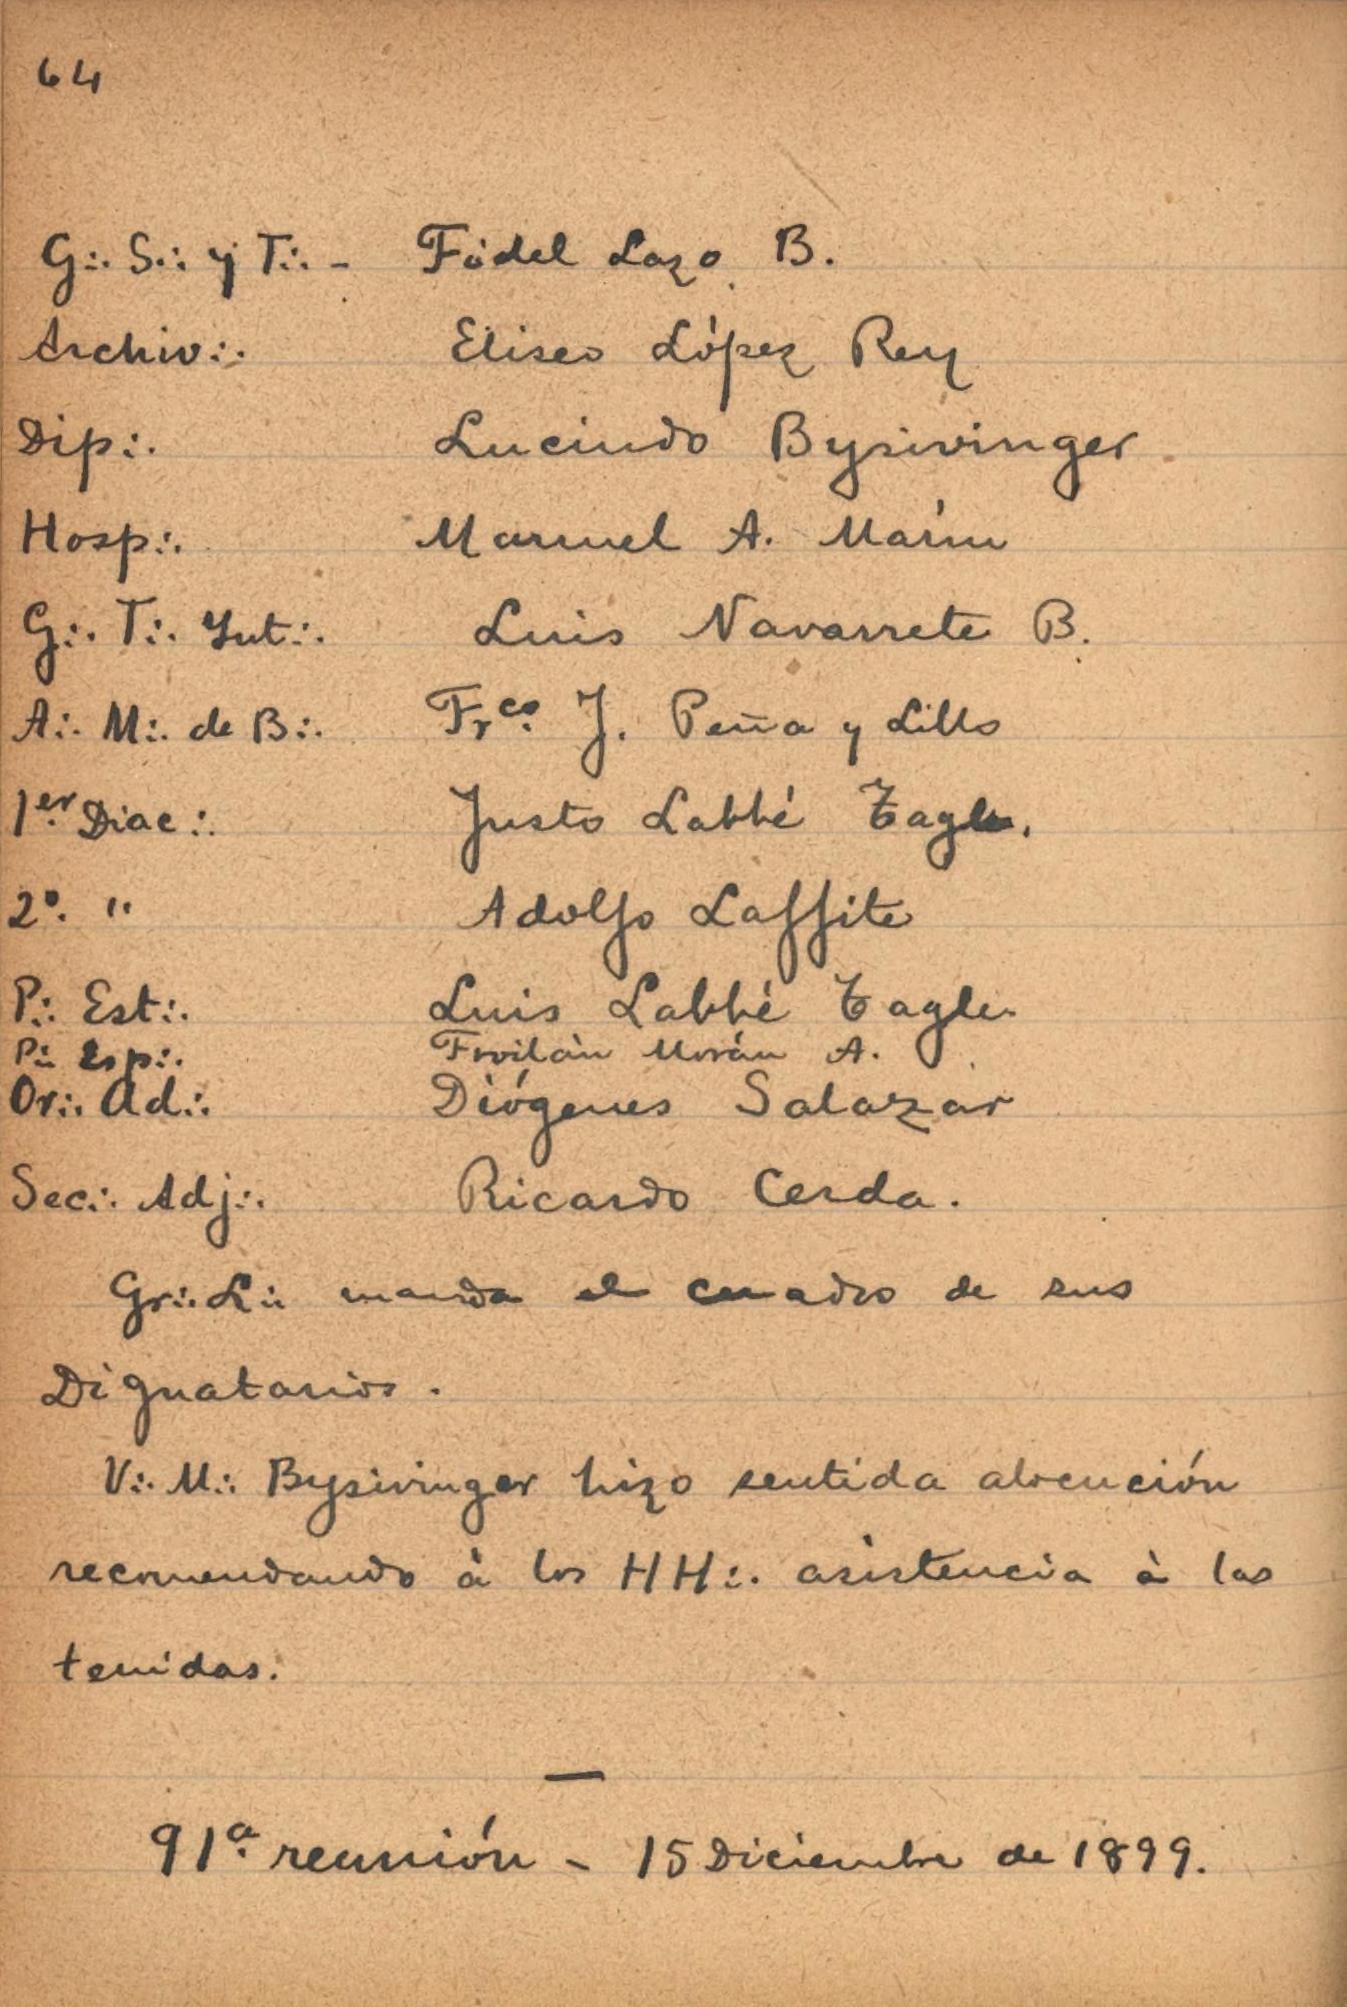 64
G∴ S∴ y T∴ - Fidel Lazo B.
Archiv∴ Eliseo López Rey
Dip∴ Lucindo Bysivinger
Hosp∴ Manuel A. Marín
G∴ T∴ Int∴ Luis Navarrete B.
A∴ M∴ de B∴ Frco. J. Peña y Lillo
1er Diac∴ Justo Labbé Tagle.
2o. " Adolfo Laffite
P∴ Est∴ Luis Labbé Tagle
P∴ Esp∴ Froilán Morán A.
Or∴ Ad∴ Diógenes Salazar
Sec∴ Adj∴ Ricardo Cerda.
Gr∴ L∴ manda el cuadro de sus
Dignatarios.
V∴ M∴ Bysivinger hizo sentida alocución
recomendando à los HH∴ asistencia à las
tenidas.
—
91a. reunión - 15 Diciembre de 1899.